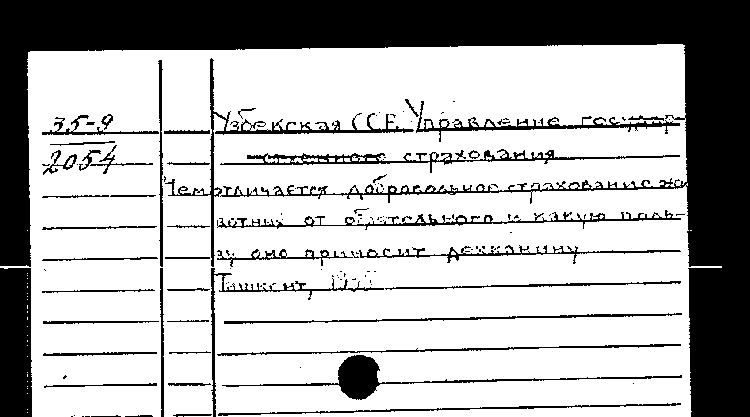 35-9
2054
Узбекская ССР. Управление государ-
ственного страхования
Чем отличается добровольное страхование жи-
вотных от обязательного и какую поль-
зу оно приносит дехканину
Ташкент, 1935